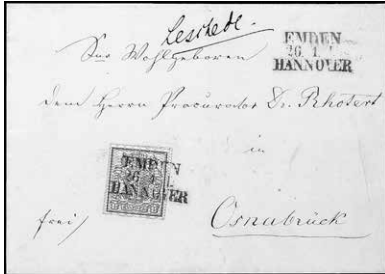 Leschede.
EMDEN
26. 1.
HANNOVER
Sr. Wohlgeboren
dem Herrn Procurator Dr. Rhotert
in
EMDEN
26 1
HANNOVER
frei
Osnabrück